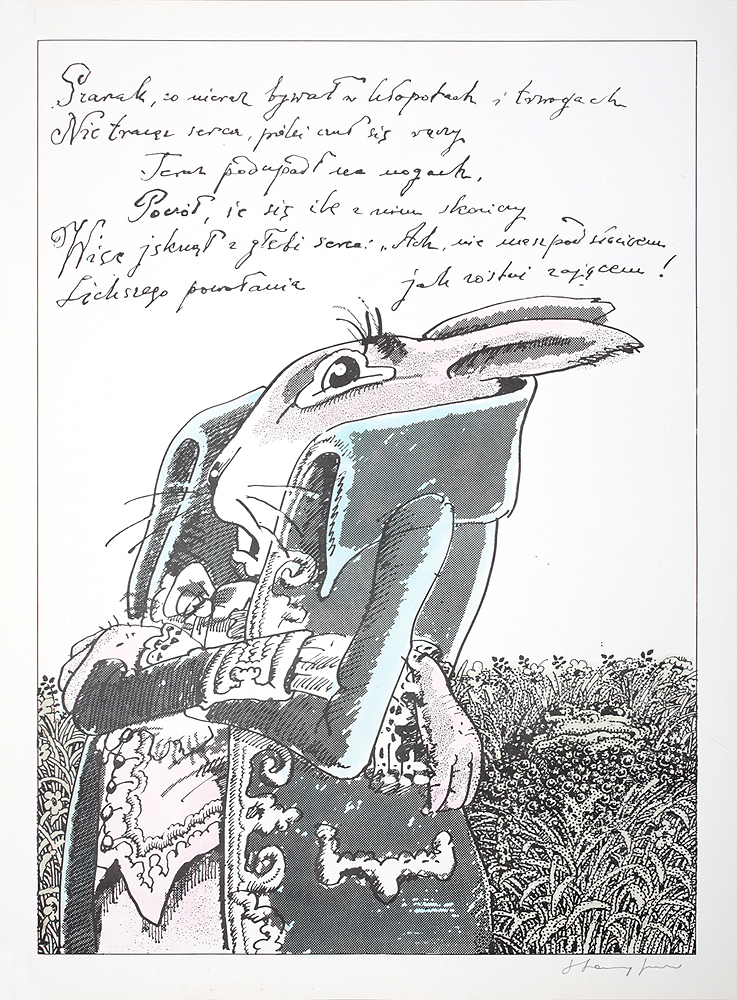 Szarak, co nieraz bywał w kłopotach i trwogach
Nie tracąc serca, póki czuł się rączy
Teraz podupadł na nogach,
Poczuł, że się źle z nim skończy
Więc jęknął z głębi serca: „Ach, nie masz pod słońcem
Lichszego powołania jak zostać zającem!